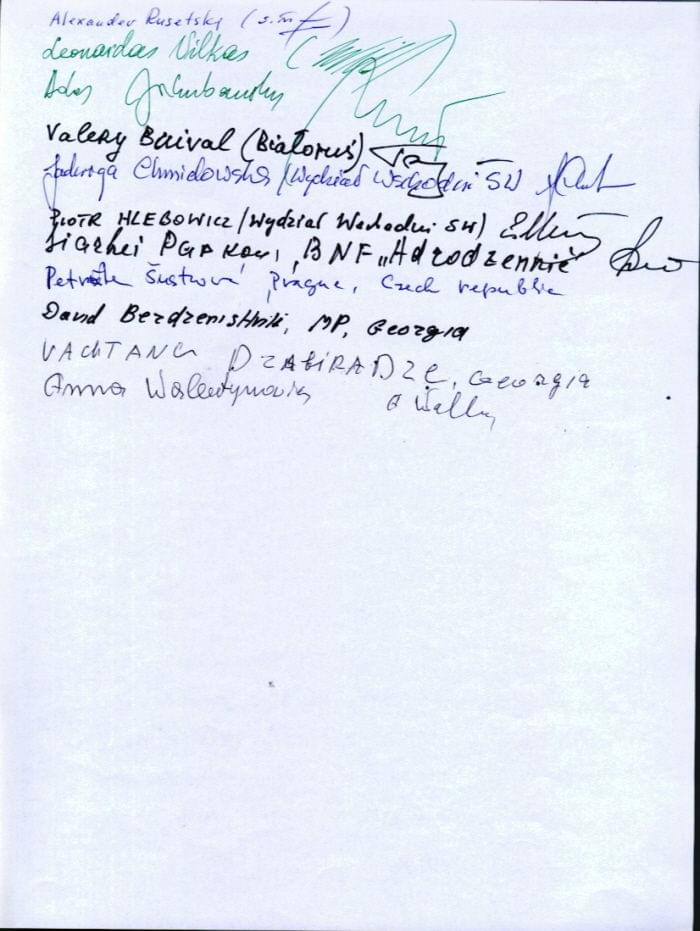 Alexander Rusetsky
Leonardas Vilkas
Adas Jakubauskas
Valery Buival (Białoruś)
Jadwiga Chmielowska (Wydział Wschodni SW
PIOTR HLEBOWICZ (Wydział Wschodni SW)
Siarhei Papkou, BNF „Adradzennie"
Petruška Šustrová, Prague, Czech republic
David Berdzenishvili, MP, Georgia
VACHTANG DZABIRADZE, Georgia
Anna Walentynowicz